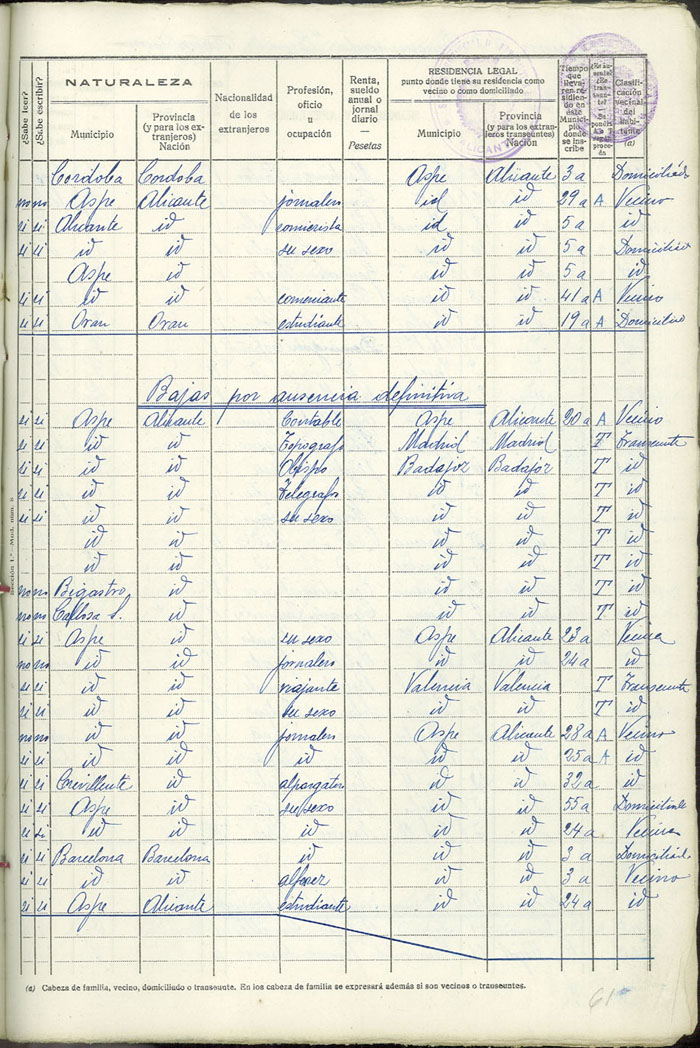 ¿Sabe leer? ¿Sabe escribir? NATURALEZA Municipio Provincia (y para los extranjeros) Nación Nacionalidad de los extranjeros Profesión, oficio u ocupación Renta, sueldo anual o jornal diario — Pesetas RESIDENCIA LEGAL punto donde tiene su residencia como vecino o como domiciliado Municipio Provincia (y para los extranjeros transeuntes) Nación Tiempo que lleva en residiendo en este Municipio donde se inscribe Clasificación vecinal del habitante (a)
Cordoba Cordoba Aspe Alicante 3 a Domiciliado
no no Aspe Alicante jornalero id 29 a A Vecino
si si Alicante id comicrista id id 5 a id
si si id id su sexo id id 5 a Domiciliado
Aspe id id id 5 a id
si si id id comerciante id id 41 a A Vecino
si si Oran Oran estudiante id id 19 a A Domiciliado
Bajas por ausencia definitiva
si si Aspe Alicante Contable Aspe Alicante 20 a A Vecino
si si id id Topografo Madrid Madrid T Transeunte
si si id id Obispo Badajoz Badajoz T id
si si id id Telegrafo id id T id
si si id id su sexo id id T id
id id id id T id
id id id id T id
no no Bigastro id id id T id
no no Callosa S. id id id T id
si si Aspe id su sexo Aspe Alicante 23 a Vecina
no no id id jornalero id id 24 a id
si si id id viajante Valencia Valencia T Transeunte
si si id id su sexo id id T id
no no id id jornalero Aspe Alicante 28 a A Vecino
si si id id id id id 25 a A id
si si Crevillente id alpargatero id id 32 a id
si si Aspe id su sexo id id 55 a Domiciliada
si si id id id id id 24 a Vecina
si si Barcelona Barcelona id id id 3 a Domiciliada
si si id id alferez id id 3 a Vecino
si si Aspe Alicante estudiante id id 24 a id
(a) Cabeza de familia, vecino, domiciliado o transeunte. En los cabeza de familia se expresará además si son vecinos o transeuntes.
61